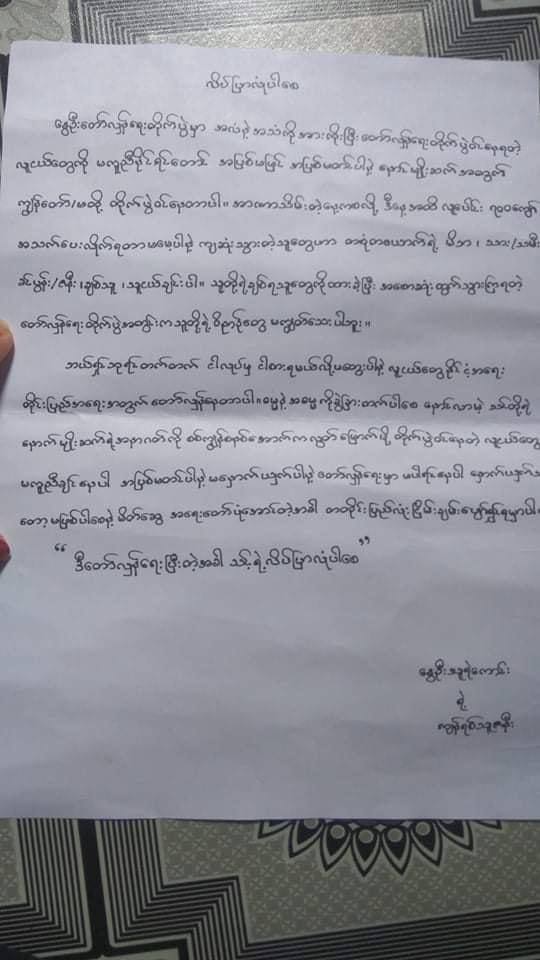 လိပ်ပြာလုံပါစေ
နွေဦးတော်လှန်ရေးတိုက်ပွဲမှာ အလံနဲ့ အသံကိုအားကိုးပြီး တော်လှန်ရေးတိုက်ပွဲဝင်နေရတဲ့
လူငယ်တွေကို မကူညီနိုင်ရင်တောင် အပြစ်မမြင် အပြစ်မတင်ပါနဲ့ နောင်မျိုးဆက်အတွက်
ကျွန်တော်/မတို့ တိုက်ပွဲဝင်နေတာပါ။ အာဏာသိမ်းတဲ့နေ့ကစလို့ ဒီနေ့အထိ လူပေါင်း ၇၀၀ကျော်
အသက်ပေးလိုက်ရတာမမေ့ပါနဲ့ ကျဆုံးသွားတဲ့သူတွေဟာ တစုံတယောက်ရဲ့ မိဘ ၊ သား/သမီး
ခင်ပွန်း/ဇနီး ၊ချစ်သူ ၊သူငယ်ချင်းပါ။ သူတို့ရဲ့ချစ်ရသူတွေကိုထားခဲ့ပြီး အစောဆုံးထွက်သွားကြရတဲ့
တော်လှန်ရေးတိုက်ပွဲအတွင်းကသူတို့ရဲ့ဝိညာဉ်တွေ မကျွတ်သေးပါဘူး။
ဘယ်ရှင်ဘုရင်တက်တက် ငါလုပ်မှ ငါစားရမယ်လို့မတွေးပါနဲ့ လူငယ်တွေနိုင်ငံ့အရေး
တိုင်းပြည်အရေးအတွက် တော်လှန်နေတာပါ။ဓမ္မနဲ့ အဓမ္မကိုခွဲခြားတတ်ပါစေ နောင်လာမဲ့ သင်တို့ရဲ့
နောက်မျိုးဆက်ရဲ့အနာဂတ်ကို စစ်ကျွန်စနစ်အောက်ကလွတ်မြောက်ဖို့ တိုက်ပွဲဝင်နေတဲ့ လူငယ်တွေ
မကူညီချင်နေပါ အပြစ်မတင်ပါနဲ့ မနှောက်ယှက်ပါနဲ့ တော်လှန်ရေးမှာ မပါရင်နေပါ နှောက်ယှက်
တော့ မဖြစ်ပါစေနဲ့ မိတ်ဆွေ အရေးတော်ပုံအောင်တဲ့အခါ တတိုင်းပြည်လုံး ငြိမ်းချမ်းပျော်ရွှင်ရမှာပါ
“ ဒီတော်လှန်ရေးပြီးတဲ့အခါ သင့်ရဲ့လိပ်ပြာလုံပါစေ ”
နွေဦးသူရဲကောင်း
ရဲ့
ကျန်ရစ်သူဇနီး